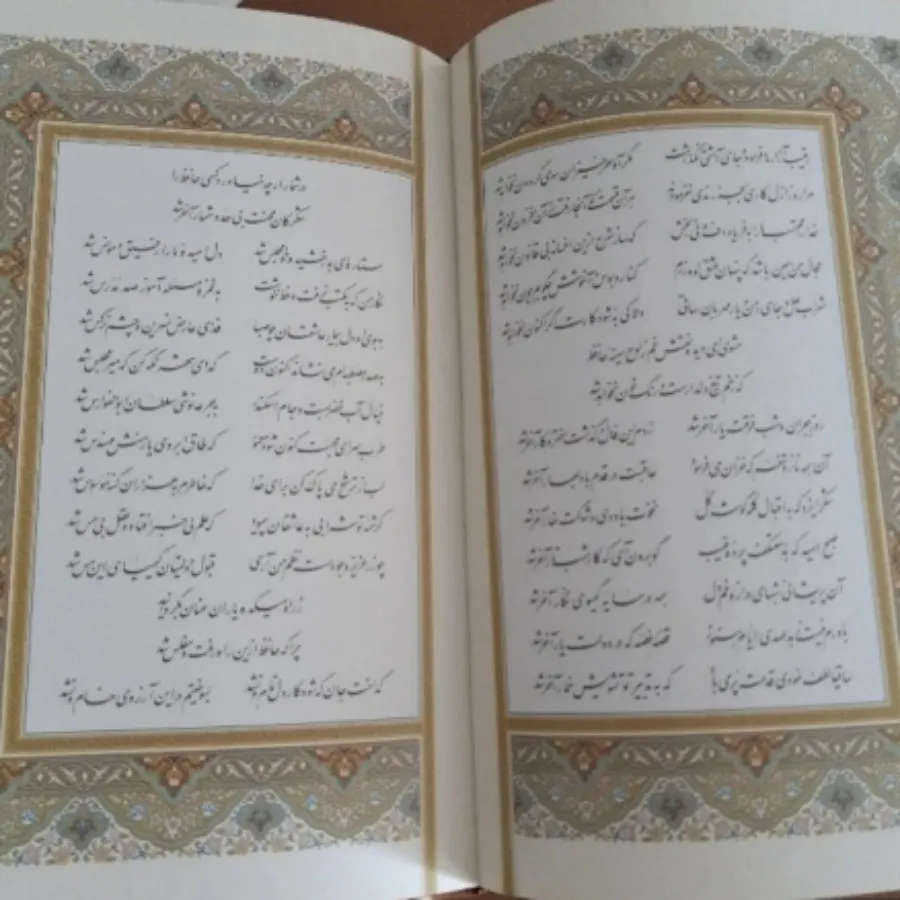 رقیب آزارها فرمود و جای آشتی نگذاشت مگر آه سحرخیزان سوی گردون نخواهد شد
مرا روز ازل کاری بجز رندی نفرمودند هر آن قسمت که آنجا رفت از آن افزون نخواهد شد
خدا را محتسب ما را به فریاد دف و نی بخش که ساز شرع ازین افسانه بی قانون نخواهد شد
مجال من همین باشد که پنهان عشق او ورزم کنار و بوس و آغوشش چگویم چون نخواهد شد
شراب لعل و جای امن و یار مهربان ساقی دلا کی به شود کارت اگر اکنون نخواهد شد
مشوی ای دیده نقش غم ز لوح سینه حافظ
که زخم تیغ دلدار است و رنگ خون نخواهد شد
روز هجران و شب فرقت یار آخر شد زدم این فال و گذشت اختر و کار آخر شد
آن همه ناز و تنعم که خزان می فرمود عاقبت در قدم باد بهار آخر شد
شکر ایزد که به اقبال کله گوشه گل نخوت باد دی و شوکت خار آخر شد
صبح امید که بد معتکف پرده غیب گو برون آی که کار شب تار آخر شد
آن پریشانی شبهای دراز و غم دل همه در سایه گیسوی نگار آخر شد
باورم نیست ز بدعهدی ایام هنوز قصه غصه که در دولت یار آخر شد
ساقیا لطف نمودی قدحت پر می باد که به تدبیر تو تشویش خمار آخر شد
در شمار ار چه نیاورد کسی حافظ را
شکر کان محنت بی حد و شمار آخر شد
ستاره‌ای بدرخشید و ماه مجلس شد دل رمیده ما را رفیق و مونس شد
نگار من که به مکتب نرفت و خط ننوشت به غمزه مسئله آموز صد مدرس شد
به بوی او دل بیمار عاشقان چو صبا فدای عارض نسرین و چشم نرگس شد
به صدر مصطبه‌ام می نشاند اکنون دوست گدای شهر نگه کن که میر مجلس شد
خیال آب خضر بست و جام اسکندر به جرعه نوشی سلطان ابوالفوارس شد
طرب سرای محبت کنون شود معمور که طاق ابروی یار منش مهندس شد
لب از ترشح می پاک کن برای خدا که خاطرم به هزاران گنه موسوس شد
کرشمه تو شرابی به عاشقان پیمود که علم بی خبر افتاد و عقل بی حس شد
چو زر عزیز وجود است نظم من آری قبول دولتیان کیمیای این مس شد
ز راه میکده یاران عنان بگردانید
چرا که حافظ ازین راه رفت و مفلس شد
گداخت جان که شود کار دل تمام و نشد بسوختیم در این آرزوی خام و نشد